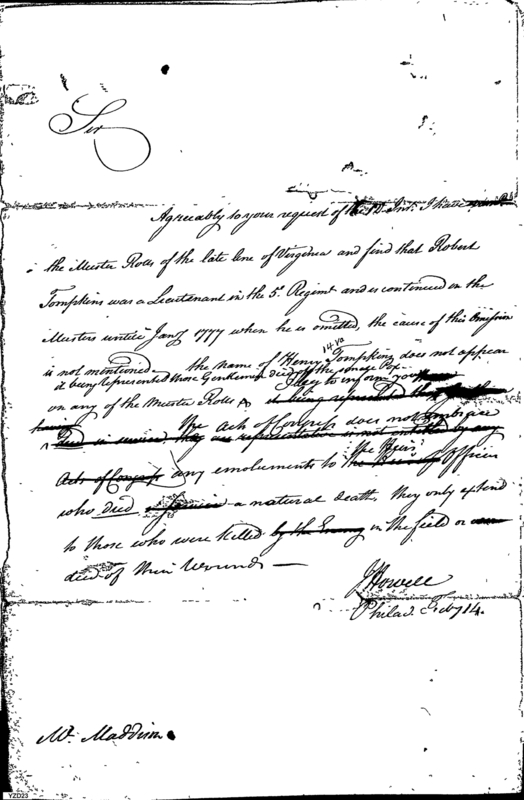 Sir
Agreeably to your request of the 12 Inst. I have
the Muster Rolls of the late line of Virginia and find that Robert
Tompkins was a Lieutenant in the 5 Regimt and is continued in the
Musters until Jany 1777 when he is omitted, the cause of this Omission
is not mentioned the name of Henry Tompkins does not appear
it being represented those Gentlemen died in the
on any of the Muster Rolls I beg to inform you it being represented
The Acts of Congress does not embrace
Died in service representative is not entitled by any
Acts of Congress any emoluments to the Heirs of Officers
who died a natural death, they only extend
to those who were killed by the Enemy in the field or
died of their Wounds —
J Howell
Philad. Feby 14.
Mr. Maddison
YZD23